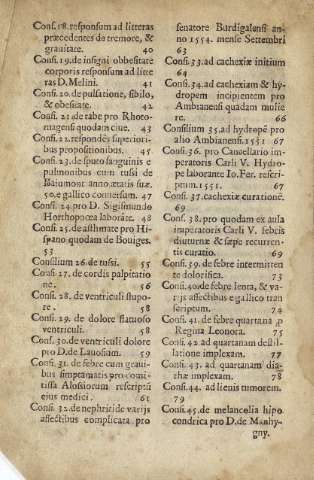 Consi.18.responsum ad litteras
præcedentes de tremore, &
grauitate. 40
Consi.19.de insigni obbesitate
corporis responsum ad litte
ras D.Melini. 41
Consi.20.de pulsatione, sibilo,
& obesitate. 42
Consi. 21.de tabe pro Rhoto-
magensi quodam ciue. 43
Consi.22.respondēs superiori-
bus propositionibus. 45
Consi.23.de sputo sanguinis e
pulmonibus cum tussi de
Baiaumont anno ætatis suæ.
50.e gallico conuersum. 47
Consi.24.pro D. Sigismundo
Horthopocea laborāte. 48
Consi.25.de asthmate pro Hi-
spano quodam de Bouiges.
53
Consilium 26.de tussi. 55
Consi.27.de cordis palpitatio
ne. 56
Consi.28.de ventriculi stupo-
re. 58
Consi.29.de dolore flatuoso
ventriculi. 58
Consi.30.de ventriculi dolore
pro D.de Lauosium. 59
Consi.31.de febre cum graui-
bus simptomatis pro comi-
tissa Alosiorum rescriptū
eius medici. 61
Consi.32.de nephritide varijs
affectibus complicata pro
senatore Burdigalensi an-
no 1554. mense Settembri
63
Consi.33.ad cachexiæ initium
64
Consi.34.ad cachexiam & hy-
dropem incipientem pro
Ambianensi quadam mulie
re. 66
Consilium 35.ad hydropē pro
alio Ambianensi.1551 67
Consi.36. pro Cancellario im-
peratoris Carli V. Hydro-
pe laborante Io.Fer. rescri-
ptum.1551. 67
Consi.37.cachexiæ curationē.
69
Consi.38.pro quodam ex aula
imperatoris Carli V. febris
diuturnæ & sæpe recurren-
tis curatio. 69
Consi.39.de febre intermitten
te dolorifica. 73
Consi.40.de febre lenta, & va-
rijs affectibus e gallico tran
scriptum. 74
Consi.41.de febre quartana p
Regina Leonora. 75
Consi.42.ad quartanam destil-
latione implexam. 77
Consi.43. ad quartanam diar-
rhæ implexam. 78
Consi.44. ad lienis tumorem.
79
Consi.45.de melancolia hipo
condrica pro D.de Manhy-
gny.